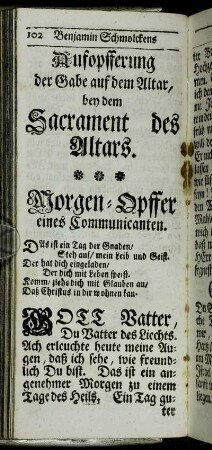 102 Benjamin Schmolckens
Aufopfferung
der Gabe auf dem Altar,
bey dem
Sacrament des
Altars.
Morgen-Opffer
eines Communicanten.
DAs ist ein Tag der Gnaden/
Steh auf/ mein Leib und Geist.
Der hat dich eingeladen/
Der dich mit Leben speist.
Komm/ ziehe dich mit Glauben an/
Daß Christus in dir wohnen kan.
GOTT Vatter,
Du Vatter des Liechts.
Ach erleuchte heute meine Au-
gen, daß ich sehe, wie freund-
lich Du bist. Das ist ein an-
genehmer Morgen zu einem
Tage des Heils, Ein Tag gu-
ter